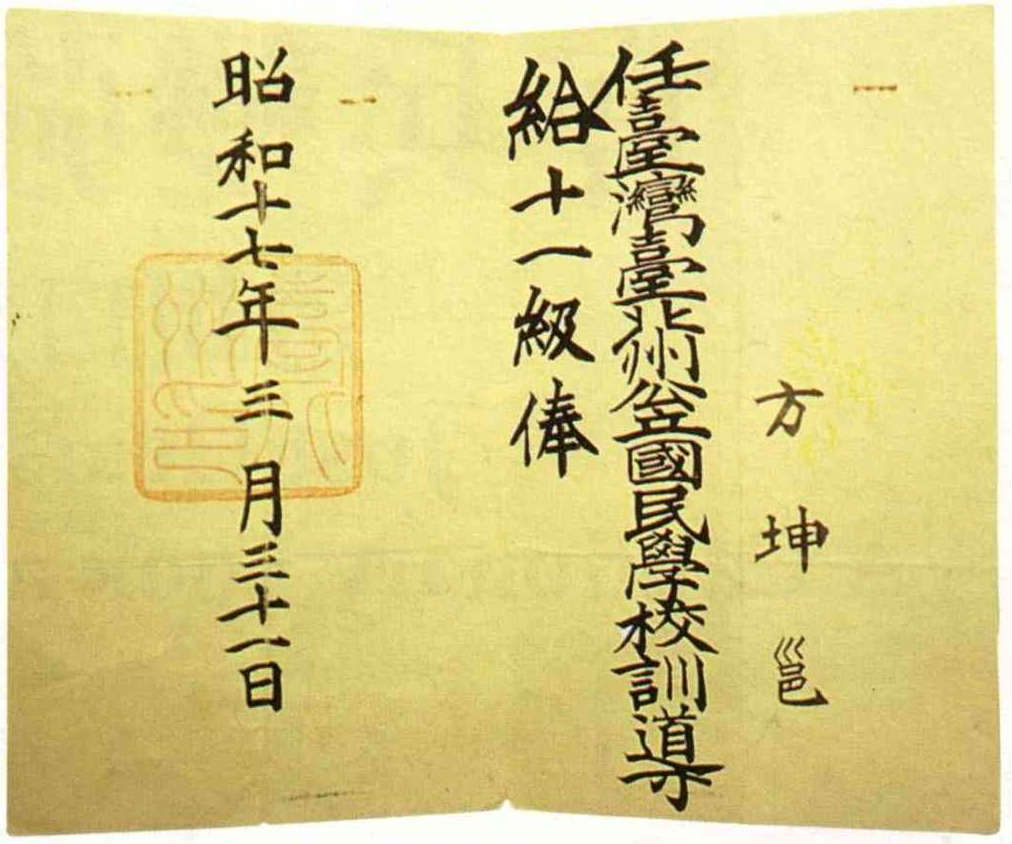 方坤邕
任臺灣臺北州公立國民學校訓導
給十一級俸
昭和十七年三月三十一日
臺北州印